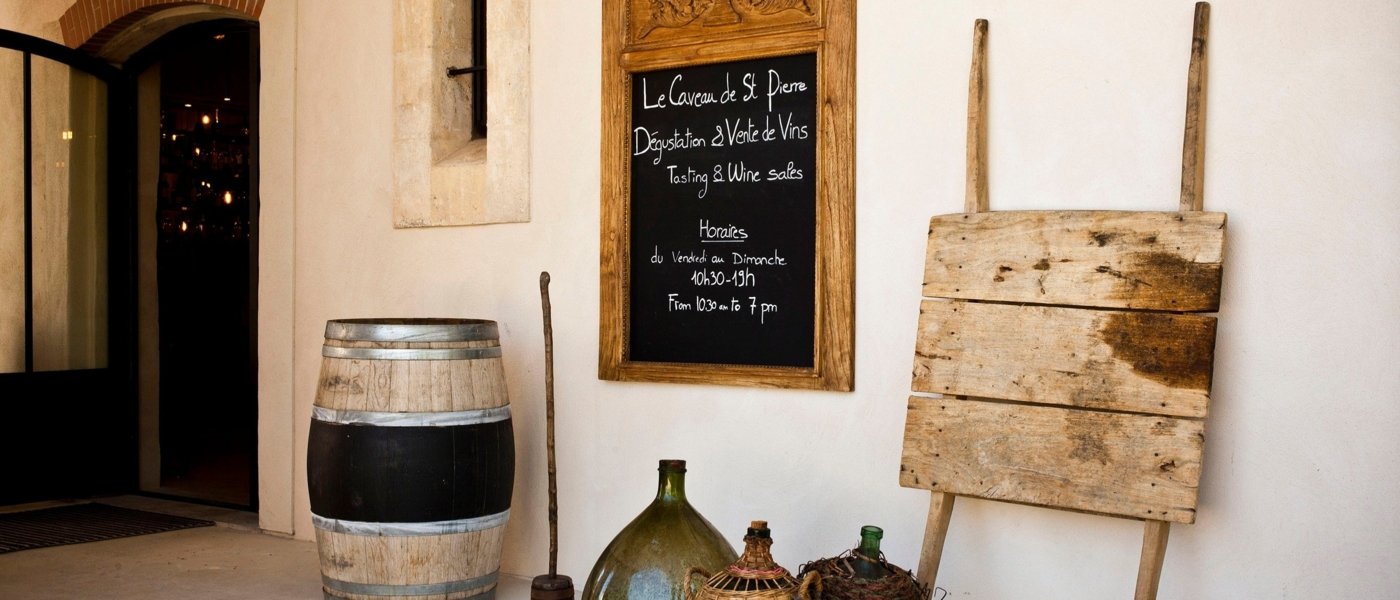 Le Caveau de St Pierre
Dégustation & Vente de Vins
Tasting & Wine sales
Horaires
du Vendredi au Dimanche
10h30-19h
From 10:30 am to 7 pm